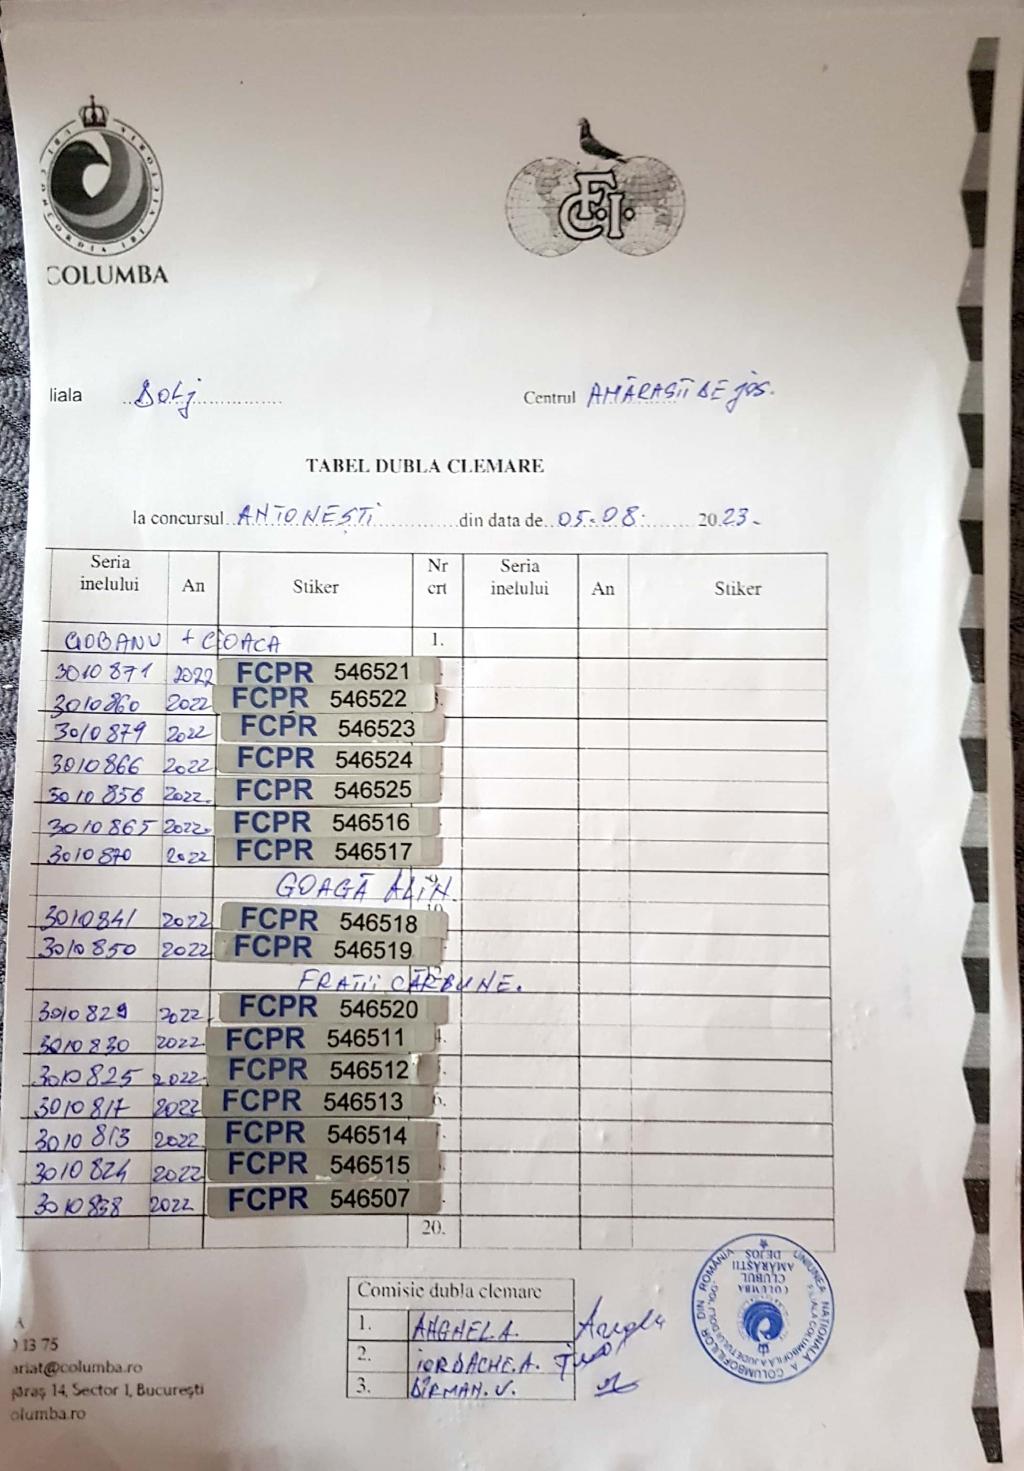 COLUMBA
F.C.I.
liala Dolj
Centrul AMĂRĂSTII DE jos.
TABEL DUBLA CLEMARE
la concursul ANTONEȘTI din data de 05.08. 2023.
Seria inelului An Stiker Nr crt Seria inelului An Stiker
CIOBANU + CIOACA 1.
3010871 2022 FCPR 546521
3010860 2022 FCPR 546522
3010879 2022 FCPR 546523
3010866 2022 FCPR 546524
3010856 2022. FCPR 546525
3010865 2022. FCPR 546516
3010870 2022 FCPR 546517
GOAGĂ ALIN.
3010841 2022 FCPR 546518
3010850 2022 FCPR 546519
FRAȚII CĂRBUNE.
3010829 2022 FCPR 546520
3010830 2022 FCPR 546511
3010825 2022 FCPR 546512
3010817 2022 FCPR 546513 6.
3010813 2022 FCPR 546514
3010824 2022 FCPR 546515
3010838 2022 FCPR 546507
20.
Comisie dubla clemare
1. ANGHEL A.
2. IORDACHE. A.
3. DÎRMAN. V.
UNIUNEA NATIONALA A COLUMBOFILILOR DIN ROMÂNIA
FILIALA COLUMBOFILA A JUDETULUI DOLJ
COLUMBA
CLUBUL
AMARASTII
DEJOS
A
0 13 75
ariat@columba.ro
jaraş 14, Sector 1, Bucureşti
olumba.ro